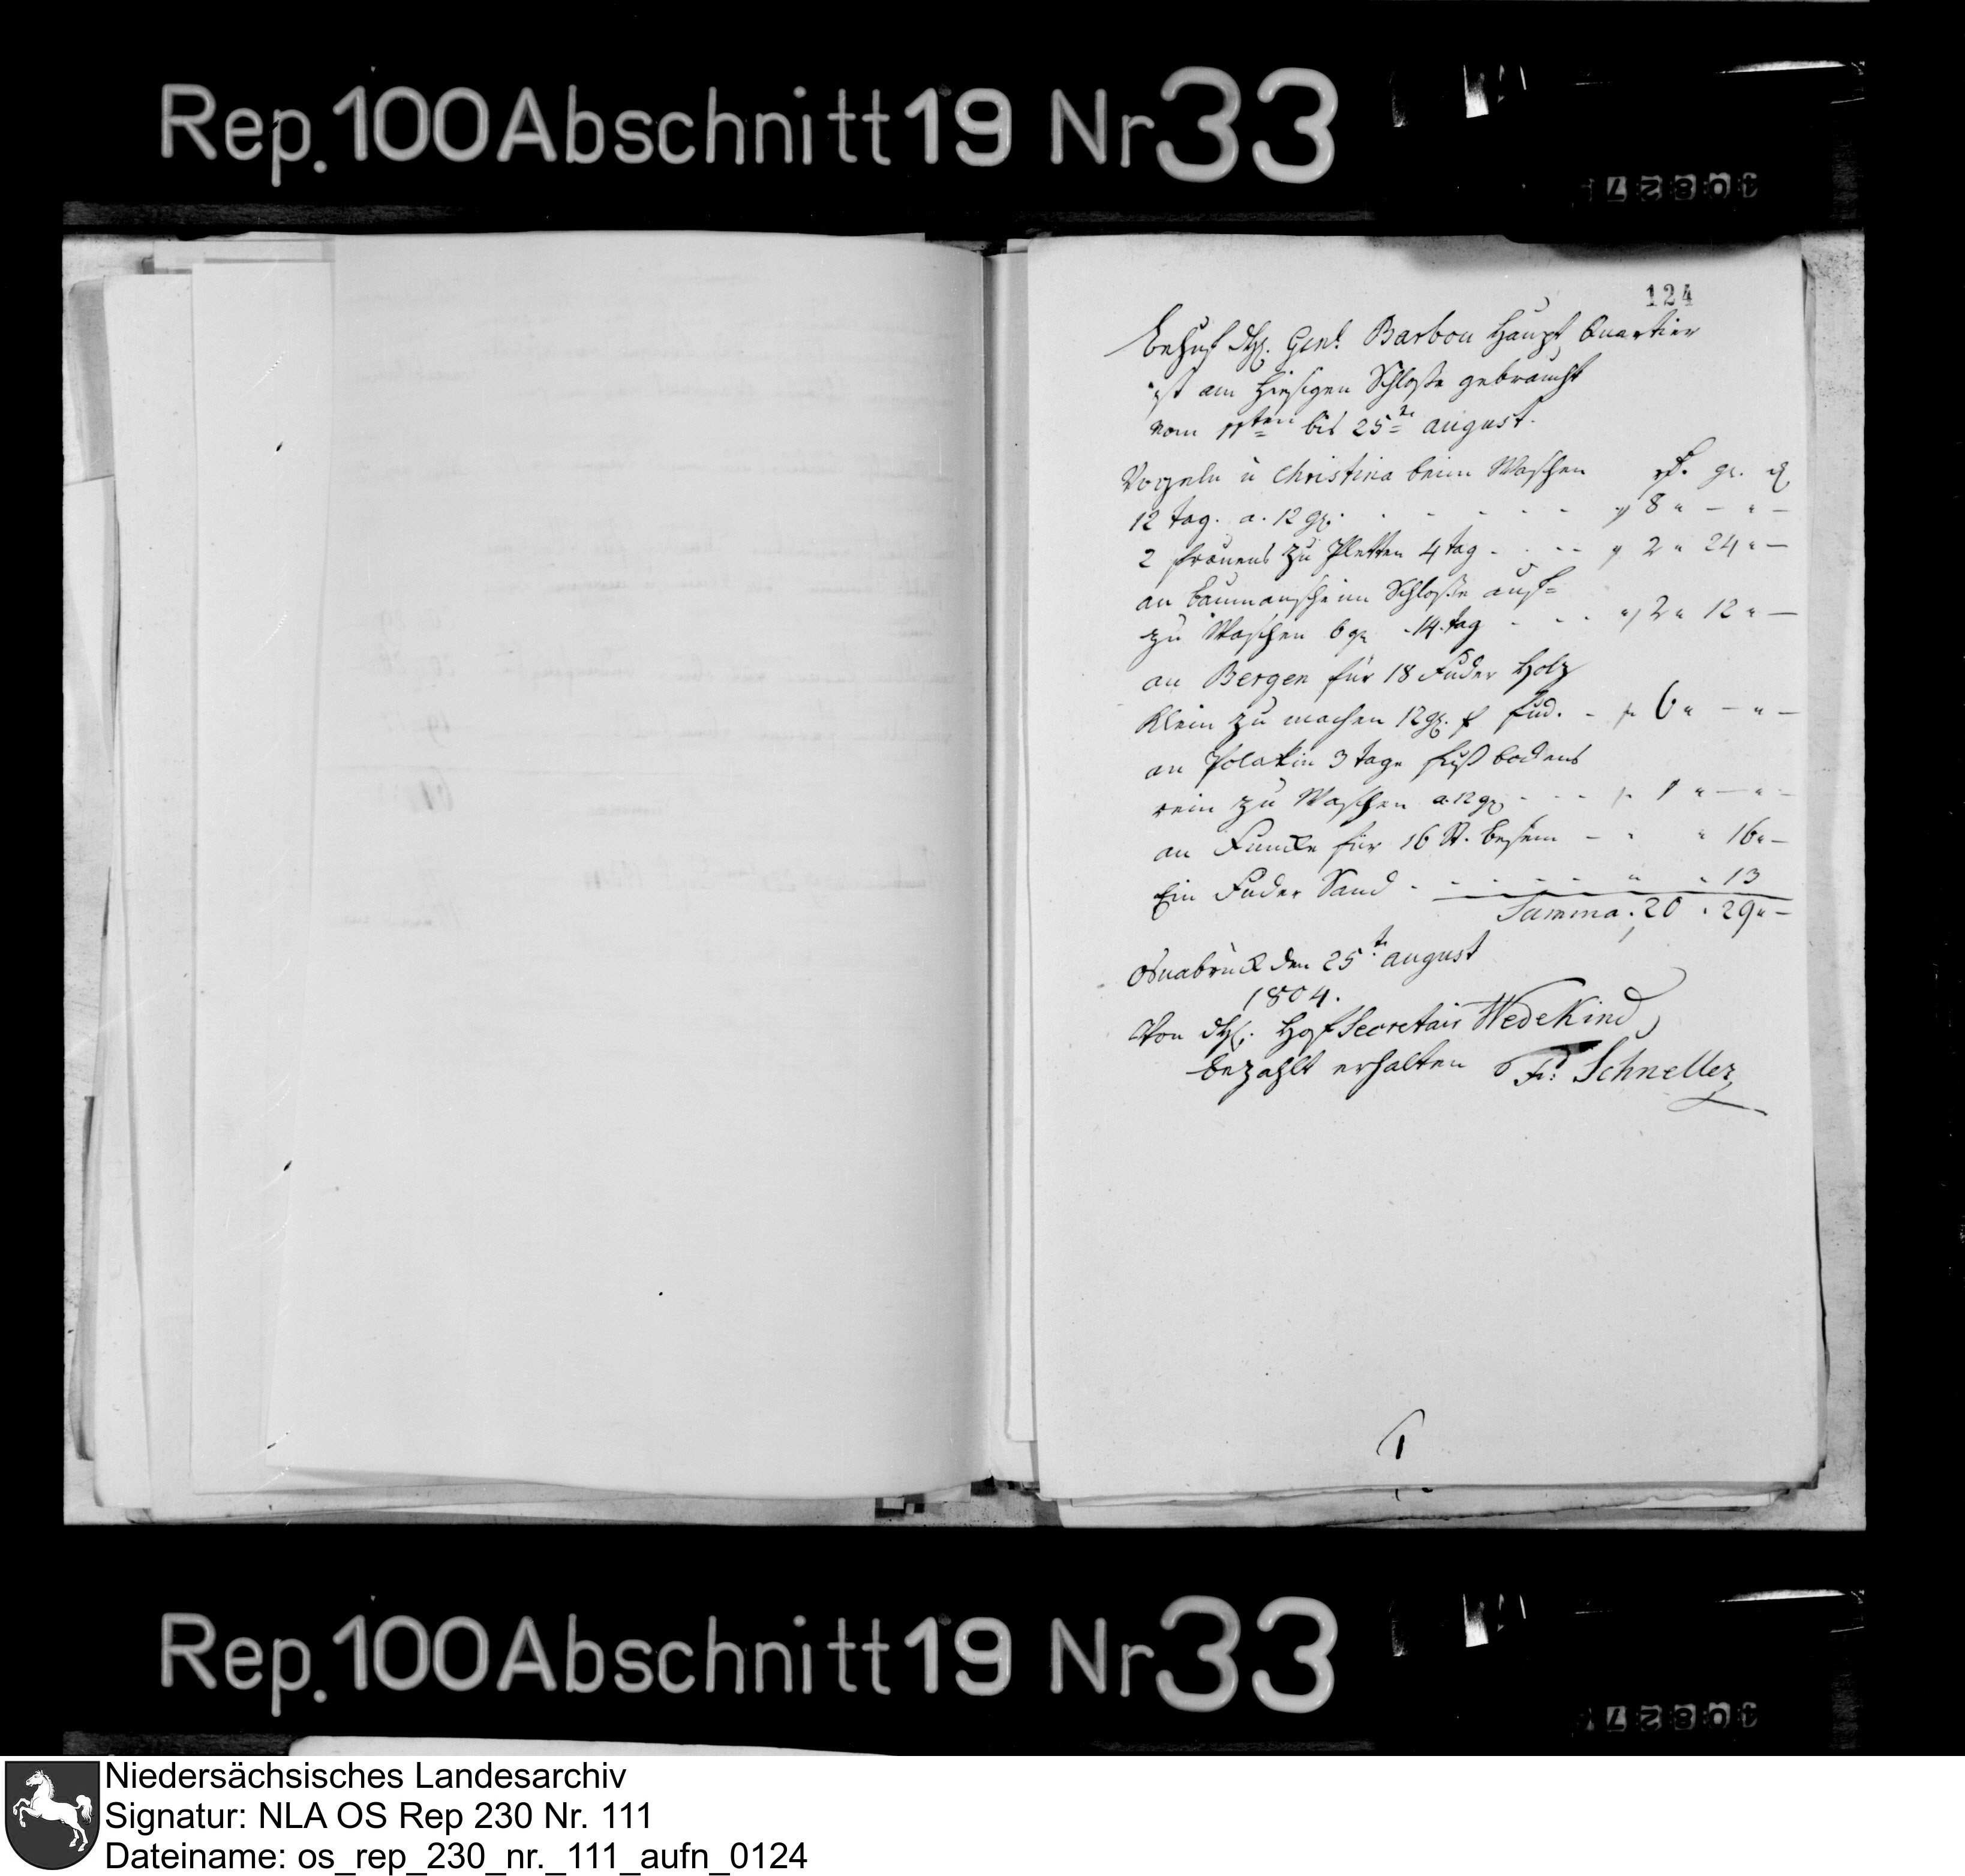 Rep. 100 Abschnitt 19 Nr 33
124
Behuf Gen: Barbou Haupt Quartier
ist am hiesigen Schloße gebraucht
vom 11ten bis 25te august.
Vogeln u Christina beim Waschen rt. gr. d
12 tag. a. 12 gr. 8 " — " —
2 frauens zu Pletten 4 tag 2 " 24 " —
an im Schloße auf=
zu Waschen 6 gr 14 tag 2 " 12 " —
an Bergen für 18 Fuder Holz
Klein zu machen 12 gr. p fud. 6 " — " —
an Polakin 3 tage fuß bodens
rein zu Waschen a 12 gr 1 " — " —
an Funcke für 16 St. besem " 16 " —
Ein Fuder Sand " " 13
Summa : 20 " 29 " —
Osnabrück den 25te august
1804.
Von H. Hof Secretair Wedekind
bezahlt erhalten Fr: Schneller
Rep. 100 Abschnitt 19 Nr 33
Niedersächsisches Landesarchiv
Signatur: NLA OS Rep 230 Nr. 111
Dateiname: os_rep_230_nr._111_aufn_0124